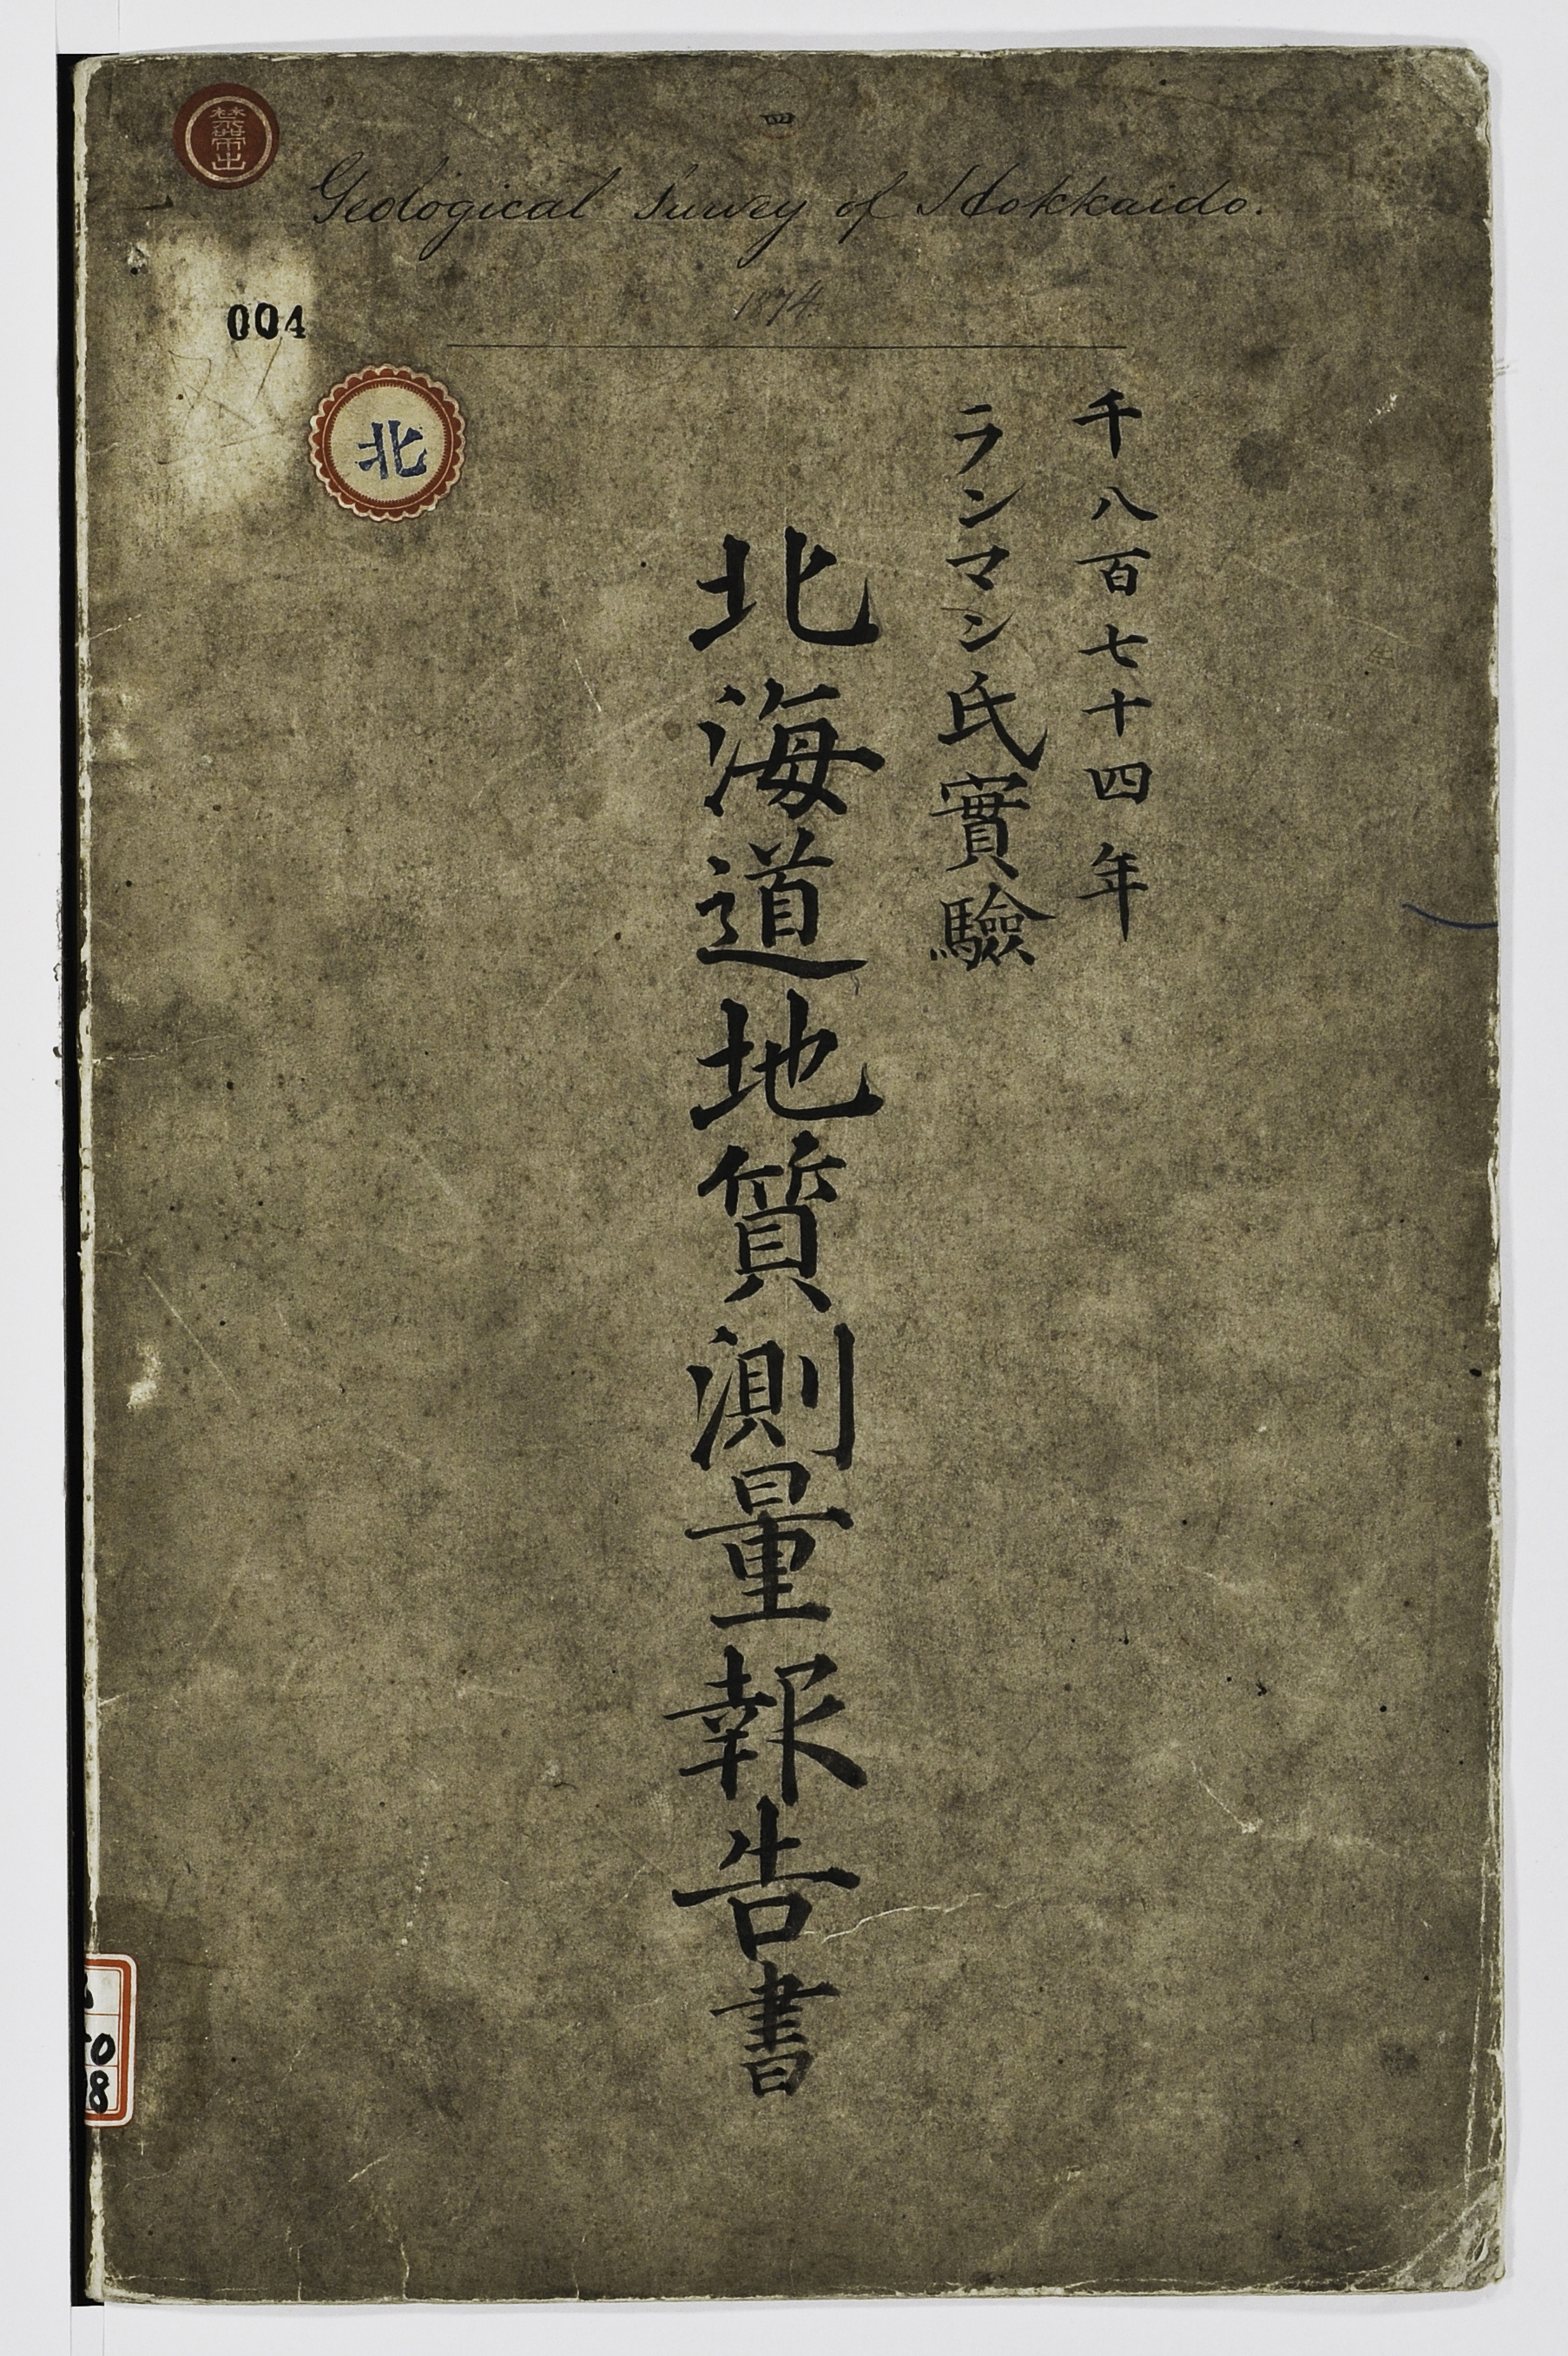 四
禁帶出
Geological Survey of Hokkaido.
1874.
004
北
千八百七十四年
ランマン氏實驗
北海道地質測量報告書
0
8